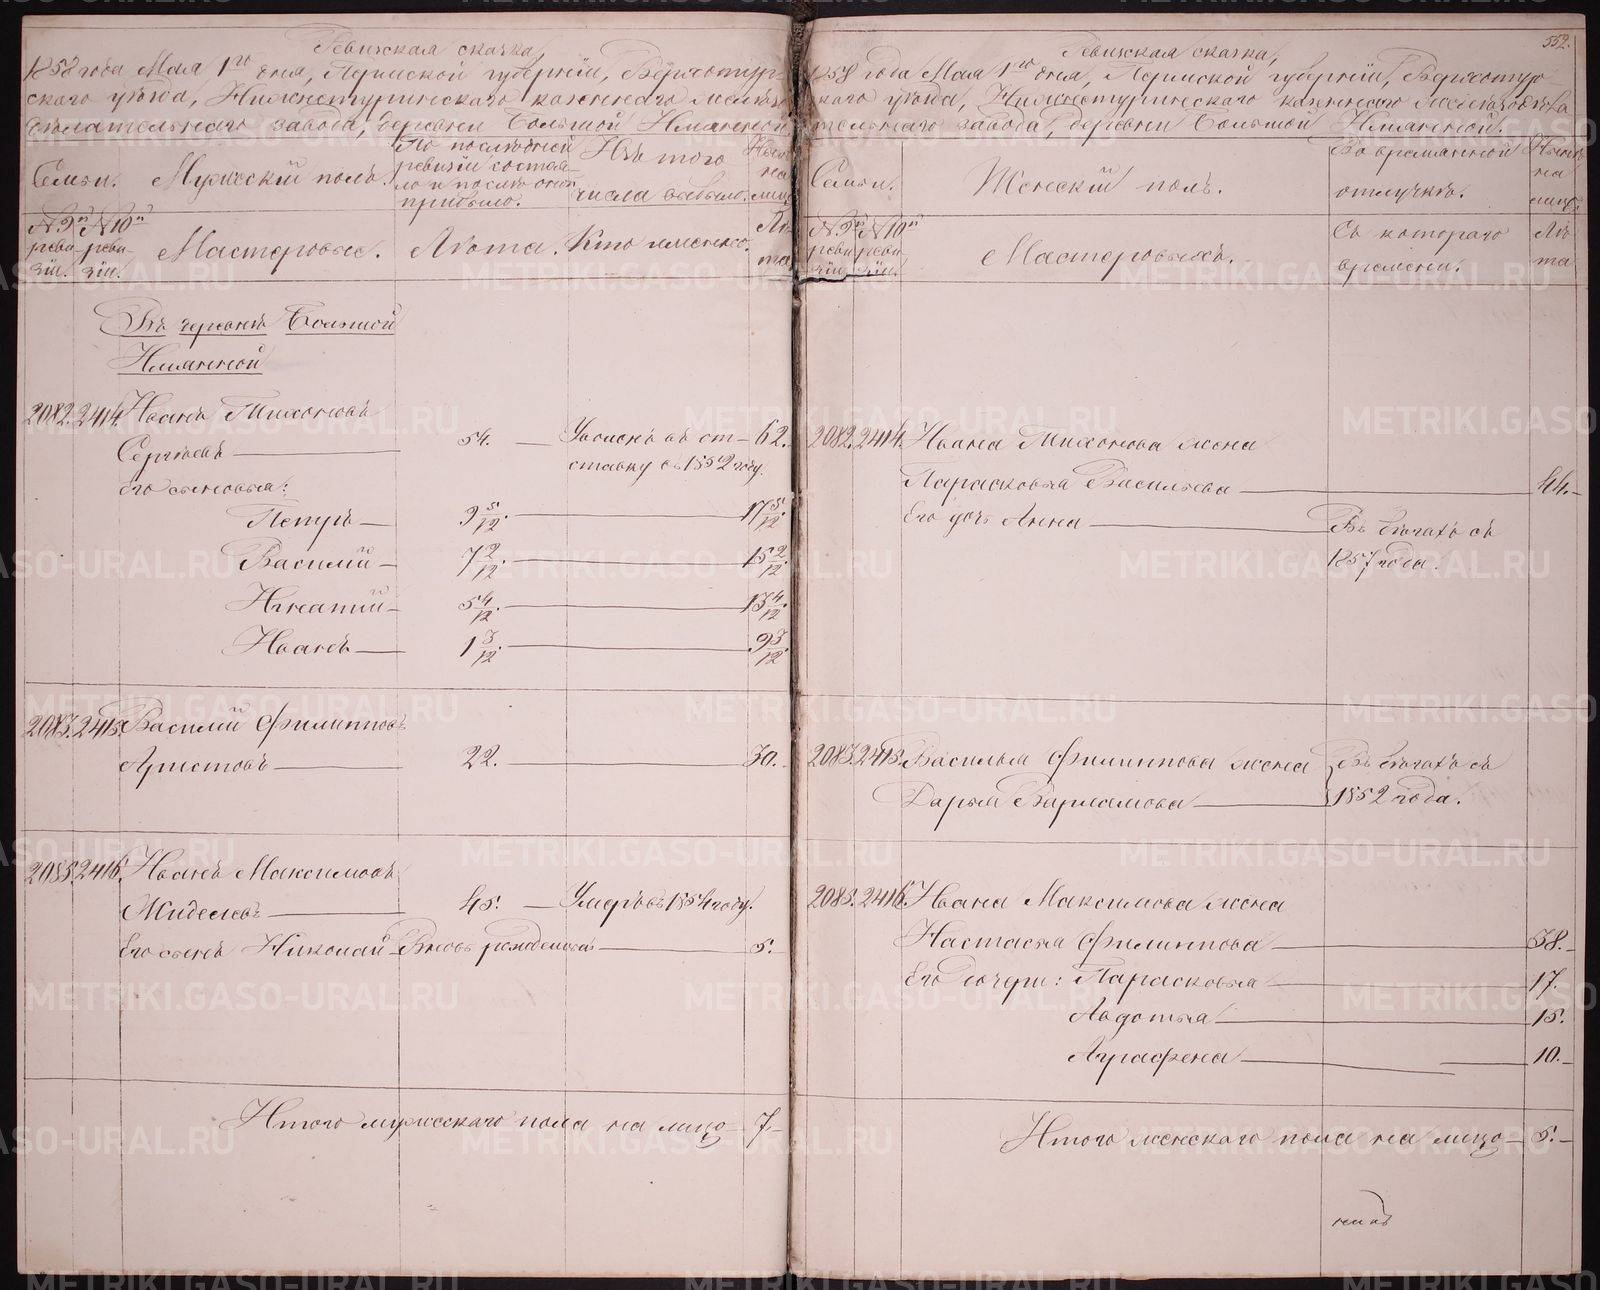 Ревижская сказка,
1858 года Мая 1го дня, Пермской губернiи, Верхотур-
скаго уѣзда, Нижнетуринскаго казеннаго желѣзо-
дѣлательнаго завода, деревни Большой Именной
Семьи. Мужескiй полъ. По послѣдней ревизiи состоя-ло и послѣ оной прибыло. Изъ того числа выбыло. Нынѣ на лицо
№ 9й ревизiи. № 10й ревизiи. Мастеровые. Лѣта. Кто именно. Лѣта
Въ деревнѣ Большой
Именной
2082. 2414. Иванъ Тихоновъ
Сергѣевъ 54. Уволенъ въ от- 62.
ставку съ 1852 году.
Его сыновья:
Петръ 9 5/12. 17 5/12.
Василiй 7 2/12. 15 2/12.
Игнатiй 5 4/12. 13 4/12.
Иванъ 1 3/12. 9 3/12.
2083. 2415. Василiй Филипповъ
Аристовъ 22. 30.
2085. 2416. Иванъ Максимовъ
Жиделевъ 45. Умеръ въ 1854 году.
Его сынъ Николай Вновь рожденный 5.
Итого мужескаго пола на лицо 7.
552.
Ревижская сказка,
1858 года Мая 1го дня, Пермской губернiи, Верхотур-
скаго уѣзда, Нижнетуринскаго казеннаго желѣзодѣла-
тельнаго завода, деревни Большой Именной.
Семьи. Женскiй полъ. Во временной отлучкѣ. Нынѣ на лицо.
№ 9й ревизiи. № 10й ревизiи. Мастеровыхъ. Съ котораго времени. Лѣта
2082. 2414. Ивана Тихонова жена
Парасковья Васильева 44.
Его дочь Анна Въ бѣгахъ съ
1857 года.
2083. 2415. Василья Филиппова жена Въ бѣгахъ съ
Дарья Варламова 1852 года.
2085. 2416. Ивана Максимова жена
Настасья Филиппова 38.
Его дочери: Парасковья 17.
Авдотья 15.
Аграфена 10.
Итого женскаго пола на лицо 5.
METRIKI.GASO-URAL.RU